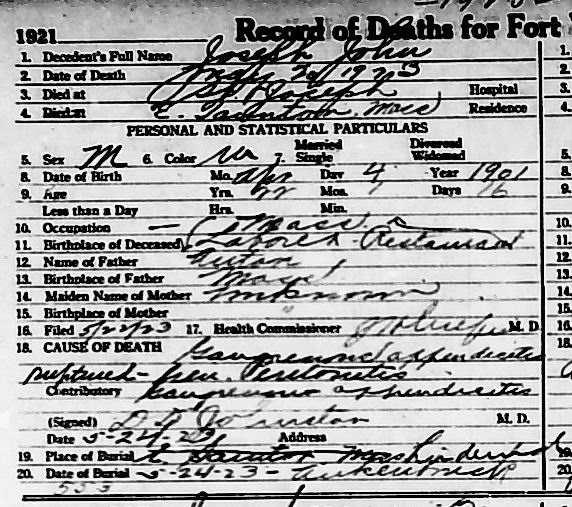 1921 Record of Deaths for Fort
1. Decedent's Full Name Joseph John
2. Date of Death May 20 1923
3. Died at St. Joseph Hospital
4. Died at E. Taunton, Mass Residence
PERSONAL AND STATISTICAL PARTICULARS
5. Sex M 6. Color W 7. Married Single Divorced Widowed
8. Date of Birth Mo. Apr Day 4 Year 1901
9. Age Yrs. 22 Mos. 1 Days 16
Less than a Day Hrs. Min.
10. Occupation — Mass.
11. Birthplace of Deceased Laborer - Restaurant
12. Name of Father
13. Birthplace of Father
14. Maiden Name of Mother unknown
15. Birthplace of Mother
16. Filed 5/22/23 17. Health Commissioner M. D.
18. CAUSE OF DEATH Gangrenous appendicitis
ruptured - Gen. Peritonitis
Contributory Gangrenous appendicitis
(Signed) Johnston M. D.
Date 5-24-23 Address
19. Place of Burial E Taunton Mass
20. Date of Burial 5-24-23 -